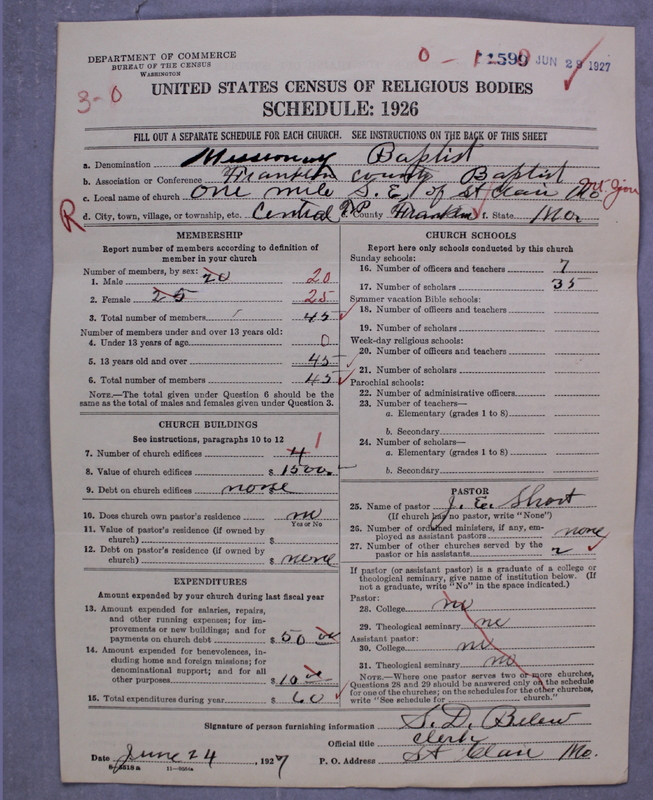 DEPARTMENT OF COMMERCE
BUREAU OF THE CENSUS
WASHINGTON
11599 JUN 29 1927
3-0
UNITED STATES CENSUS OF RELIGIOUS BODIES
SCHEDULE: 1926
FILL OUT A SEPARATE SCHEDULE FOR EACH CHURCH. SEE INSTRUCTIONS ON THE BACK OF THIS SHEET
a. Denomination Missionary Baptist
b. Association or Conference Franklin county Baptist
c. Local name of church one mile S.E. of St Clair Mo Mt. Zion
R
d. City, town, village, or township, etc. Central TP e. County Franklin f. State Mo.
MEMBERSHIP
Report number of members according to definition of
member in your church
Number of members, by sex:
1. Male 20 20
2. Female 25 25
3. Total number of members 45
Number of members under and over 13 years old:
4. Under 13 years of age 0
5. 13 years old and over 45
6. Total number of members 45
NOTE.—The total given under Question 6 should be
same as the total of males and females given under Question 3.
CHURCH BUILDINGS
See instructions, paragraphs 10 to 12
7. Number of church edifices 4 1
8. Value of church edifices $ 1500.
9. Debt on church edifices none
10. Does church own pastor's residence no
Yes or No
11. Value of pastor's residence (if owned by
church) $
12. Debt on pastor's residence (if owned by
church) $ none
EXPENDITURES
Amount expended by your church during last fiscal year
13. Amount expended for salaries, repairs,
and other running expenses; for im-
provements or new buildings; and for
payments on church debt $ 50 00
14. Amount expended for benevolences, in-
cluding home and foreign missions; for
denominational support; and for all
other purposes $ 10 00
15. Total expenditures during year $ 60
CHURCH SCHOOLS
Report here only schools conducted by this church
Sunday schools:
16. Number of officers and teachers 7
17. Number of scholars 35
Summer vacation Bible schools:
18. Number of officers and teachers
19. Number of scholars
Week-day religious schools:
20. Number of officers and teachers
21. Number of scholars
Parochial schools:
22. Number of administrative officers
23. Number of teachers—
a. Elementary (grades 1 to 8)
b. Secondary
24. Number of scholars—
a. Elementary (grades 1 to 8)
b. Secondary
PASTOR
25. Name of pastor J. E. Short
(If church has no pastor, write "None")
26. Number of ordained ministers, if any, em-
ployed as assistant pastors none
27. Number of other churches served by the
pastor or his assistants 2
If pastor (or assistant pastor) is a graduate of a college or
theological seminary, give name of institution below. (If
not a graduate, write "No" in the space indicated.)
Pastor:
28. College no
29. Theological seminary no
Assistant pastor:
30. College no
31. Theological seminary no
NOTE.—Where one pastor serves two or more churches,
Questions 28 and 29 should be answered only on the schedule
for one of the churches; on the schedules for the other churches,
write "See schedule for church."
Signature of person furnishing information S. D. Belew
Official title clerk
Date June 24, 1927 P. O. Address St Clair Mo.
8-5518a 11-8084a